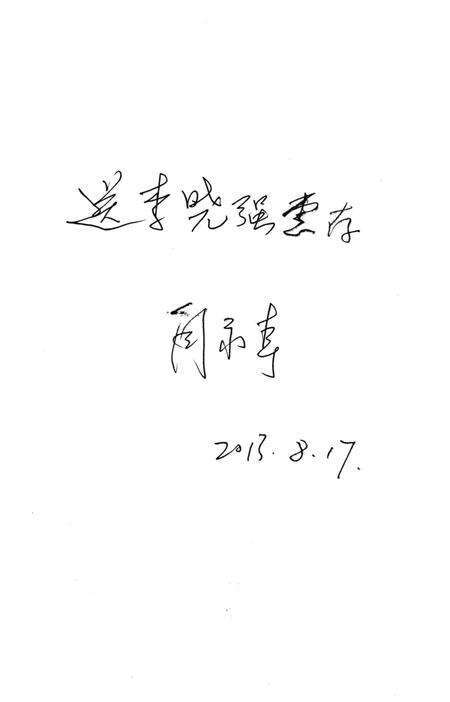 送李晓强惠存
周永
2013.8.17.